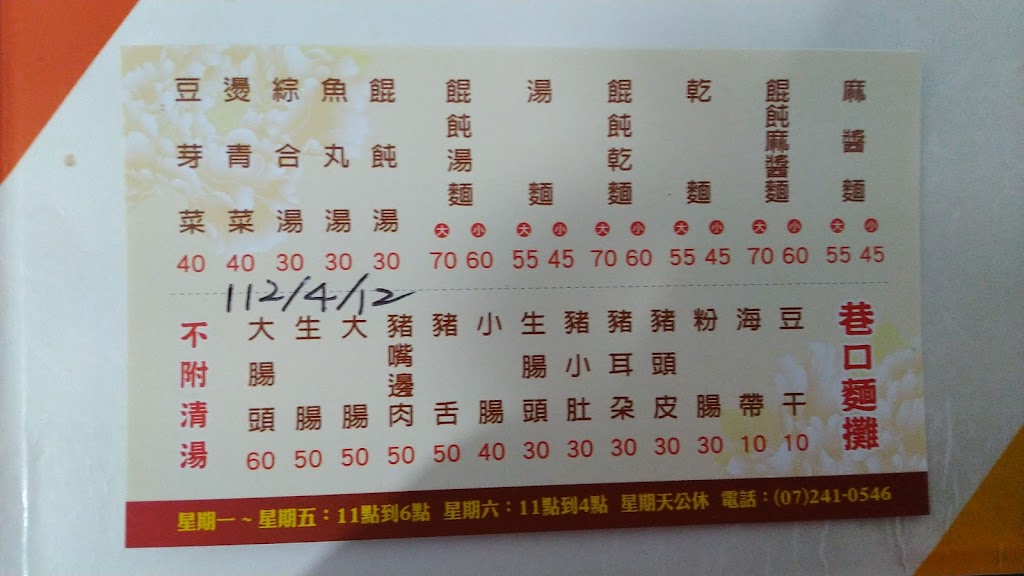 麻醬麵 大 55 小 45
餛飩麻醬麵 大 70 小 60
乾麵 大 55 小 45
餛飩乾麵 大 70 小 60
湯麵 大 55 小 45
餛飩湯麵 大 70 小 60
餛飩湯 30
魚丸湯 30
綜合湯 30
燙青菜 40
豆芽菜 40
112/4/12
巷口麵攤
豆干 10
海帶 10
粉腸 30
豬頭皮 30
豬耳朵 30
豬小肚 30
生腸頭 30
小腸 40
豬舌 50
豬嘴邊肉 50
大腸 50
生腸 50
大腸頭 60
不附清湯
星期一~星期五：11點到6點 星期六：11點到4點 星期天公休 電話：(07)241-0546